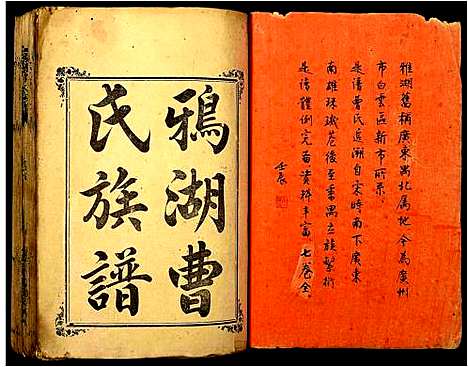 雅湖舊稱廣東番北屬地今為廣州
市白雲區新市所系
是譜曹氏追溯自宋時南下廣東
南雄珠璣巷後至番禺立族繁衍
是譜體例完備資料丰富七卷全
壬辰
鴉湖曹
氏族譜